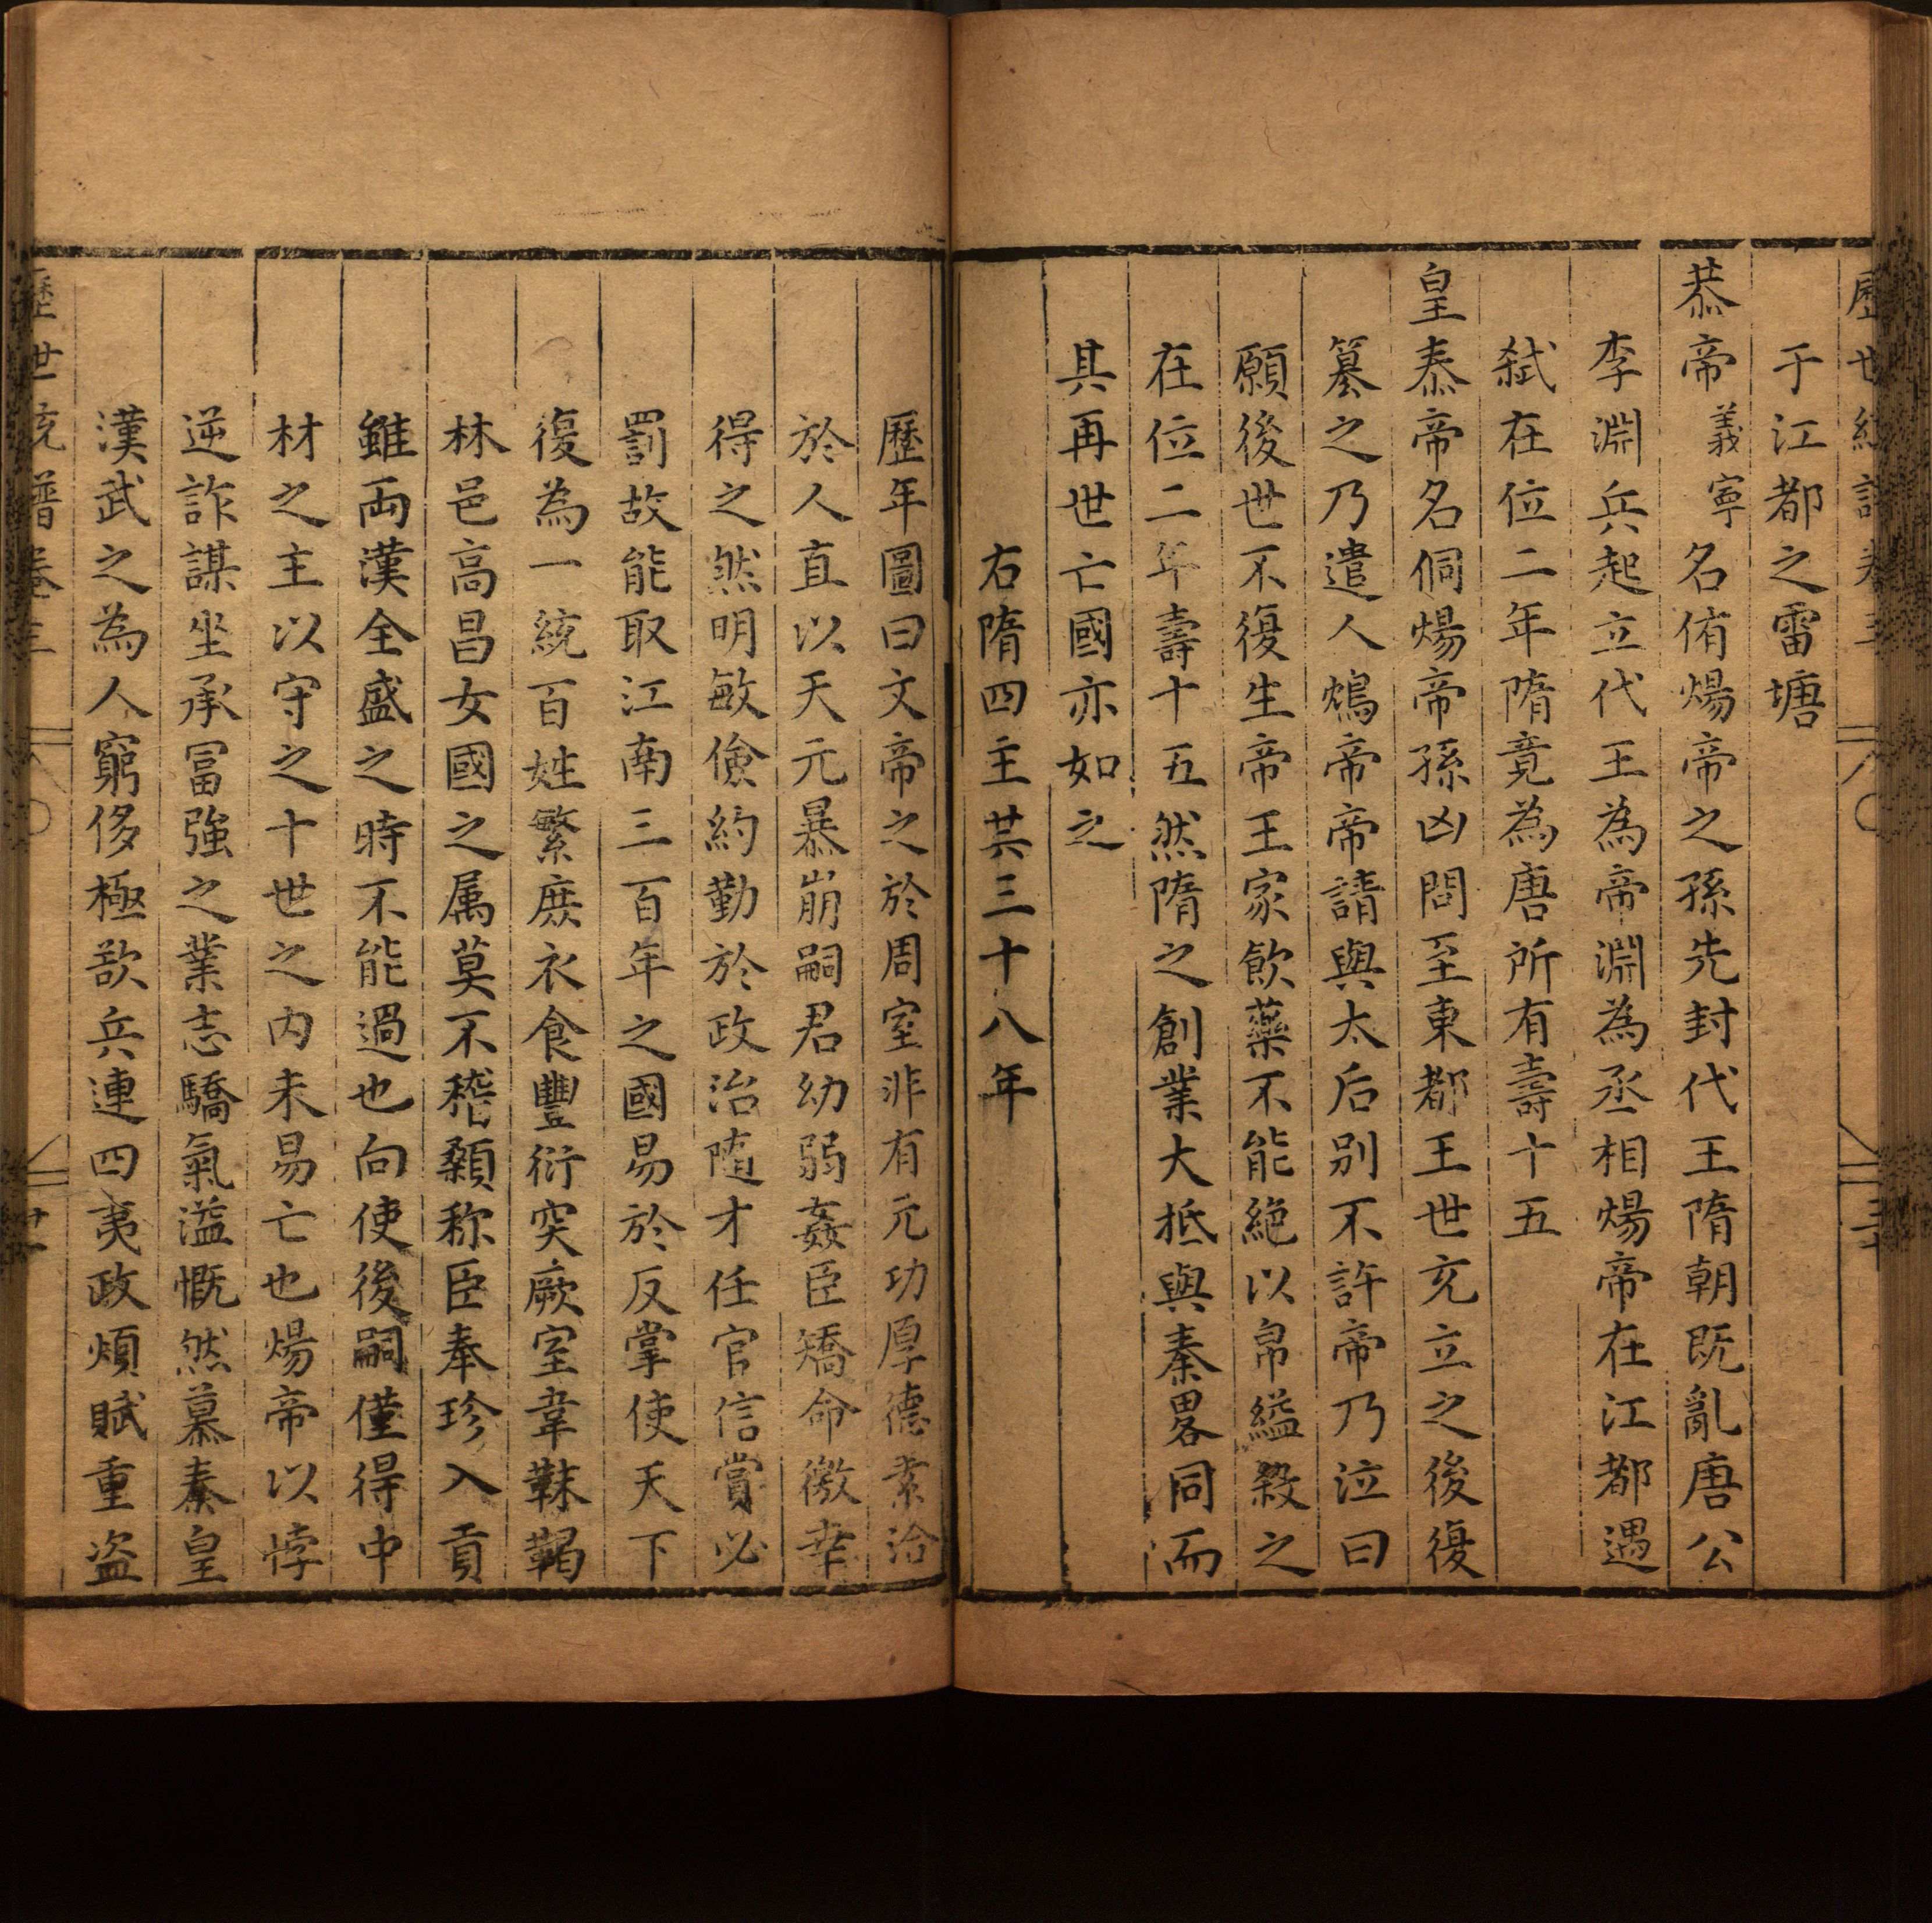 于江都之雷塘
恭帝義寧名侑煬帝之孫先封代王隋朝既亂唐公
李淵兵起立代王為帝淵為丞相煬帝在江都遇
弑在位二年隋竟為唐所有壽十五
皇泰帝名侗煬帝孫凶問至東都王世充立之後復
篡之乃遣人鴆帝帝請與太后別不許帝乃泣曰
願後世不復生帝王家飲藥不能絕以帛縊殺之
在位二年壽十五然隋之創業大抵與秦畧同而
其再世亡國亦如之
右隋四主共三十八年
歷年圖曰文帝之於周室非有元功厚德素洽
於人直以天元暴崩嗣君幼弱姦臣矯命徼幸
得之然明敏儉約勤於政治随才任官信賞必
罰故能取江南三百年之國易於反掌使天下
復為一統百姓繁庶衣食豐衍突厥室韋靺鞨
林邑高昌女國之属莫不稽顙称臣奉珍入貢
雖両漢全盛之時不能過也向使後嗣僅得中
材之主以守之十世之內未易亡也煬帝以悖
逆詐謀坐承冨強之業志驕氣溢慨然慕秦皇
漢武之為人窮侈極欲兵連四夷政煩賦重盗
歷世統譜卷三